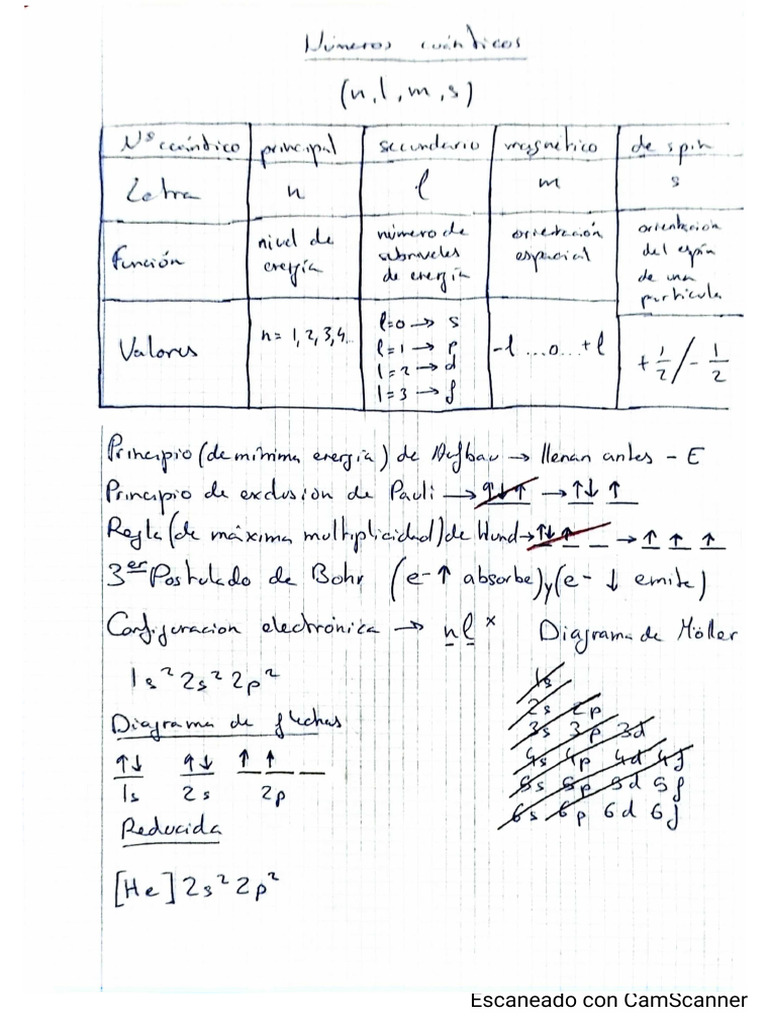 Números cuánticos
(n, l, m, s)
Nº cuántico principal secundario magnético de spin
Letra n l m s
Función nivel de energía número de subniveles de energía orientación espacial orientación del espín de una partícula
Valores n = 1, 2, 3, 4... l=0 → s l=1 → p l=2 → d l=3 → f -l ...0... +l +1/2 / -1/2
Principio (de mínima energía) de Aufbau → llenan antes - E
Principio de exclusión de Pauli → ↑↓↑ → ↑↓ ↑
Regla (de máxima multiplicidad) de Hund → ↑↓ ↑ _ → ↑ ↑ ↑
3er Postulado de Bohr (e- ↑ absorbe) y (e- ↓ emite)
Configuración electrónica → nlˣ Diagrama de Möller
1s² 2s² 2p²
1s
2s 2p
3s 3p 3d
4s 4p 4d 4f
5s 5p 5d 5f
6s 6p 6d 6f
Diagrama de flechas
↑↓ ↑↓ ↑ ↑ _
1s 2s 2p
Reducida
[He] 2s² 2p²
Escaneado con CamScanner